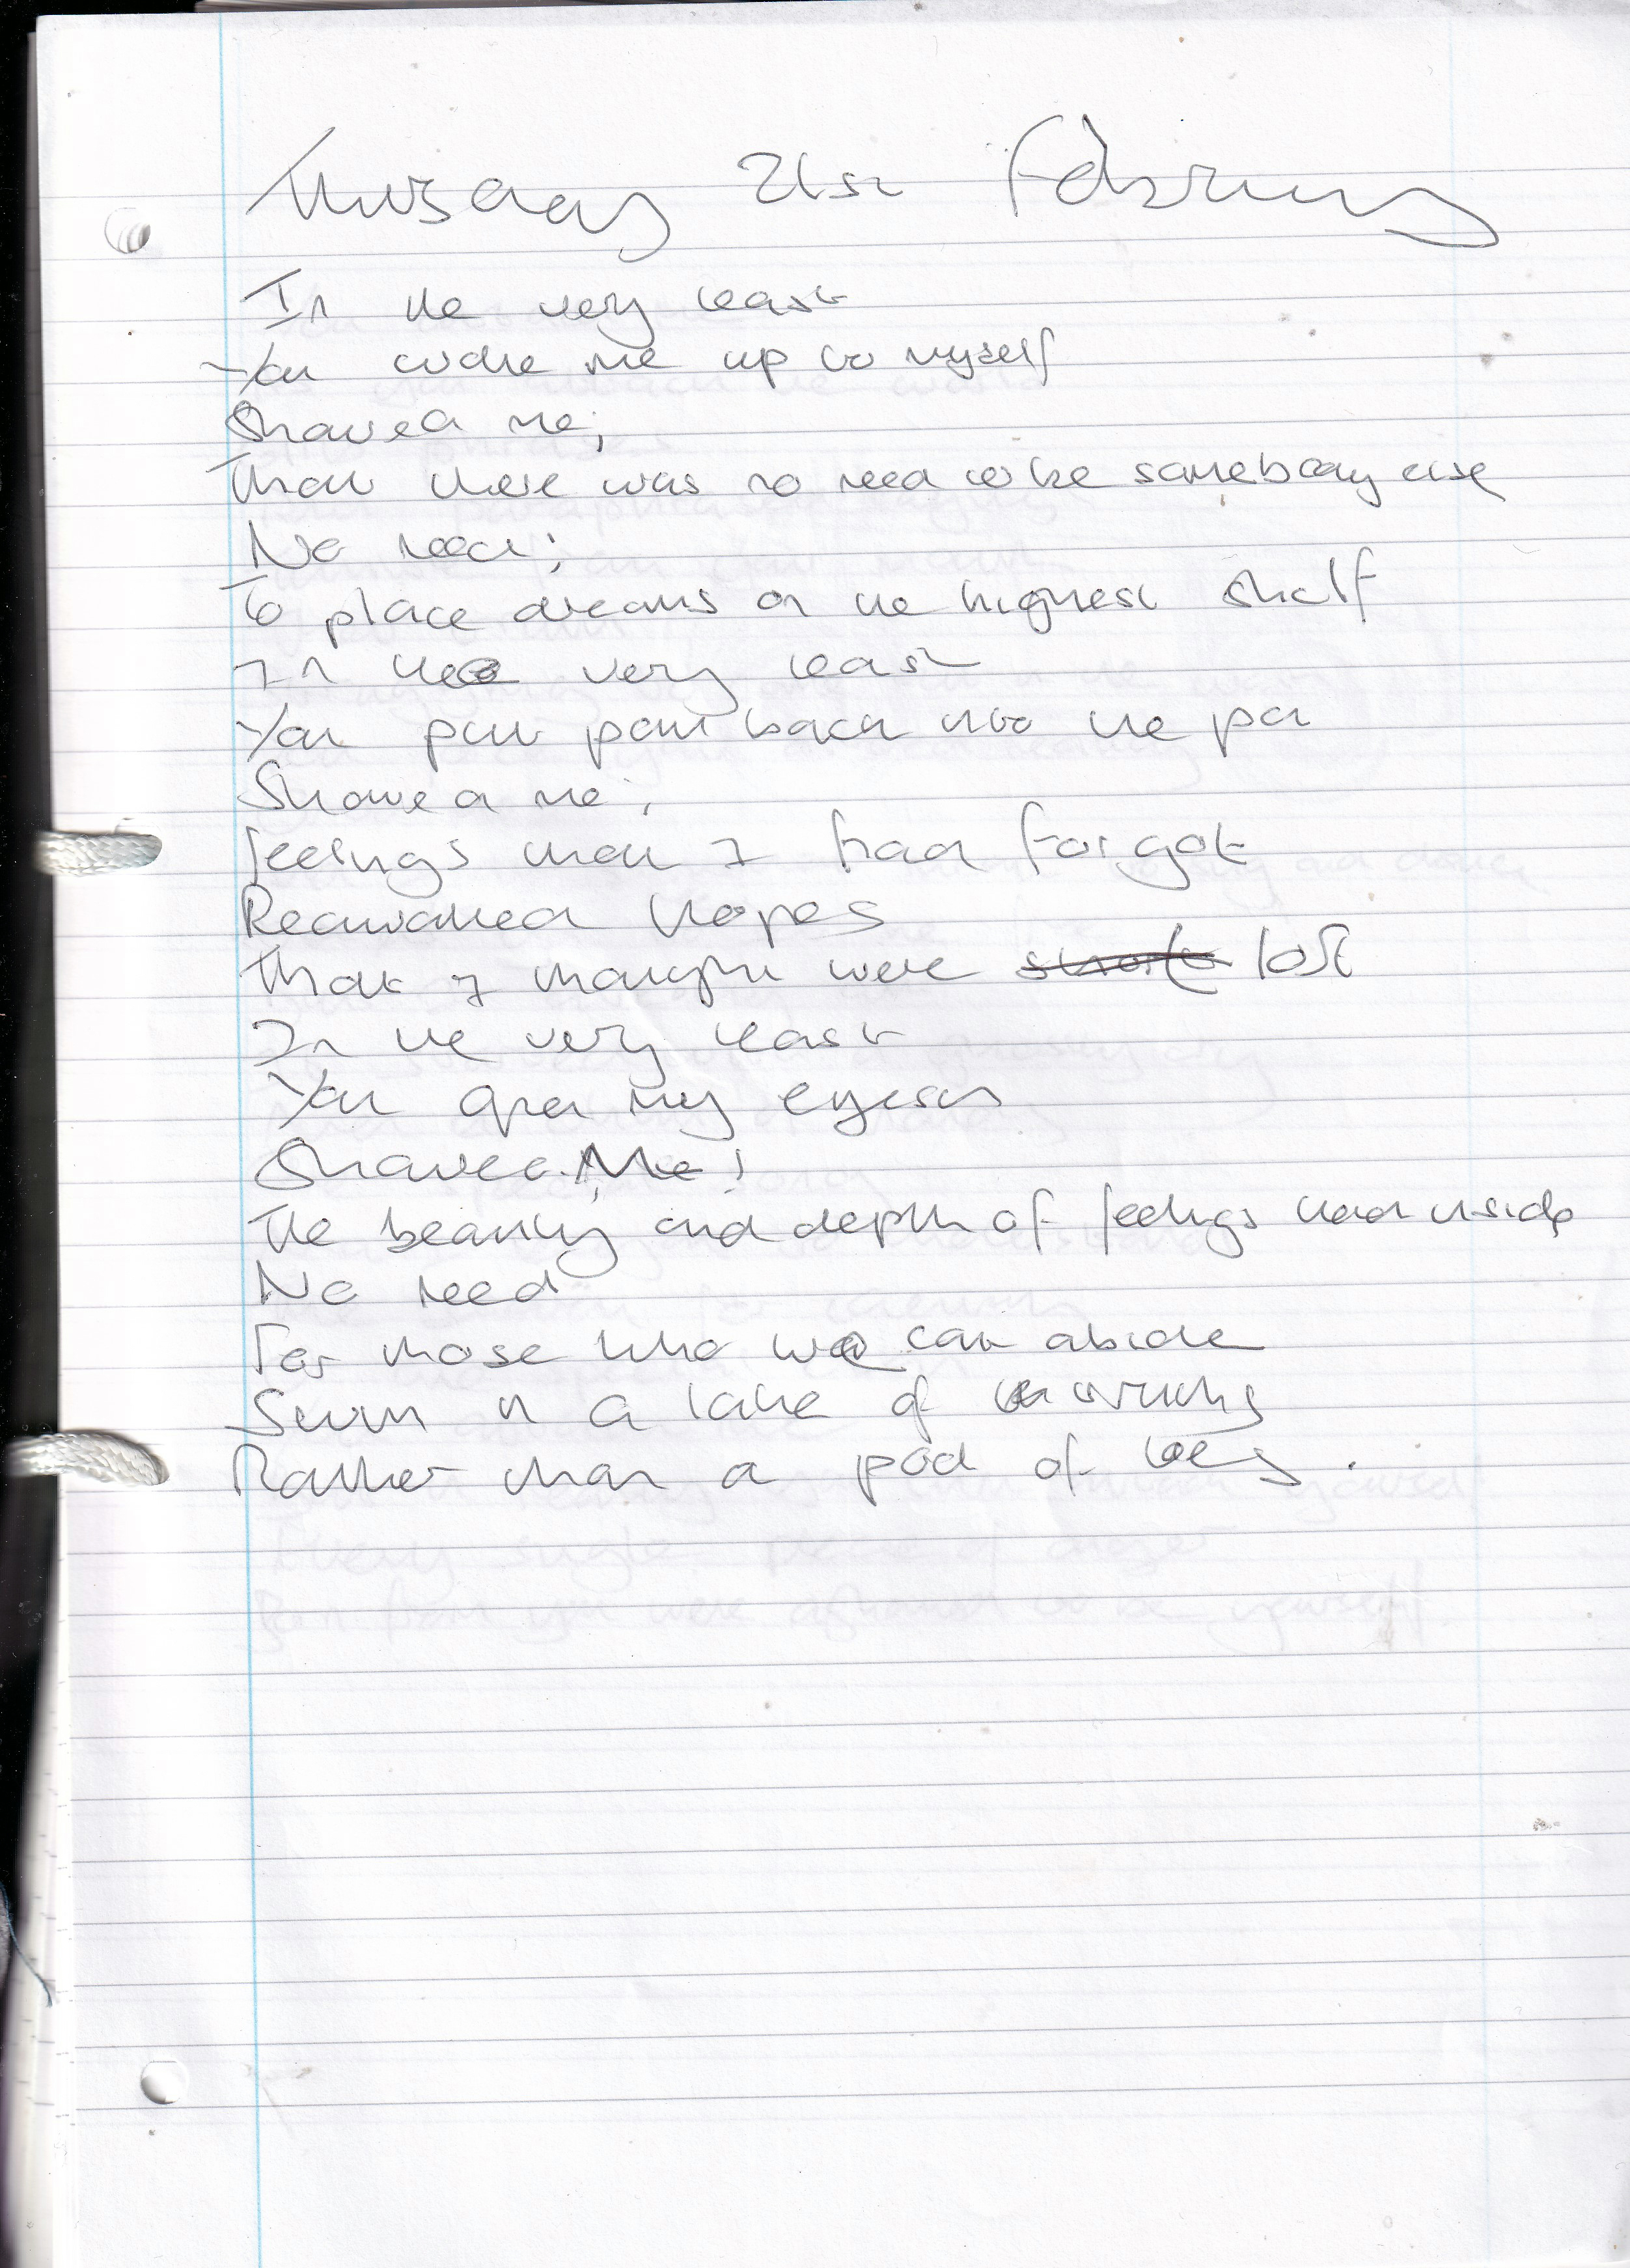 Thursday 21st February
In the very least
You woke me up to myself
Showed me;
That there was no need to be somebody else
No need;
To place dreams on the highest shelf
In the very least
You put paint back into the pot
Showed me;
Feelings that I had forgot
Reawaked hopes
That I thought were lost
In the very least
You open my eyes
Showed Me;
The beauty and depth of feelings inside
No need
For those who we can abide
Swim in a lake of
Rather than a pool of